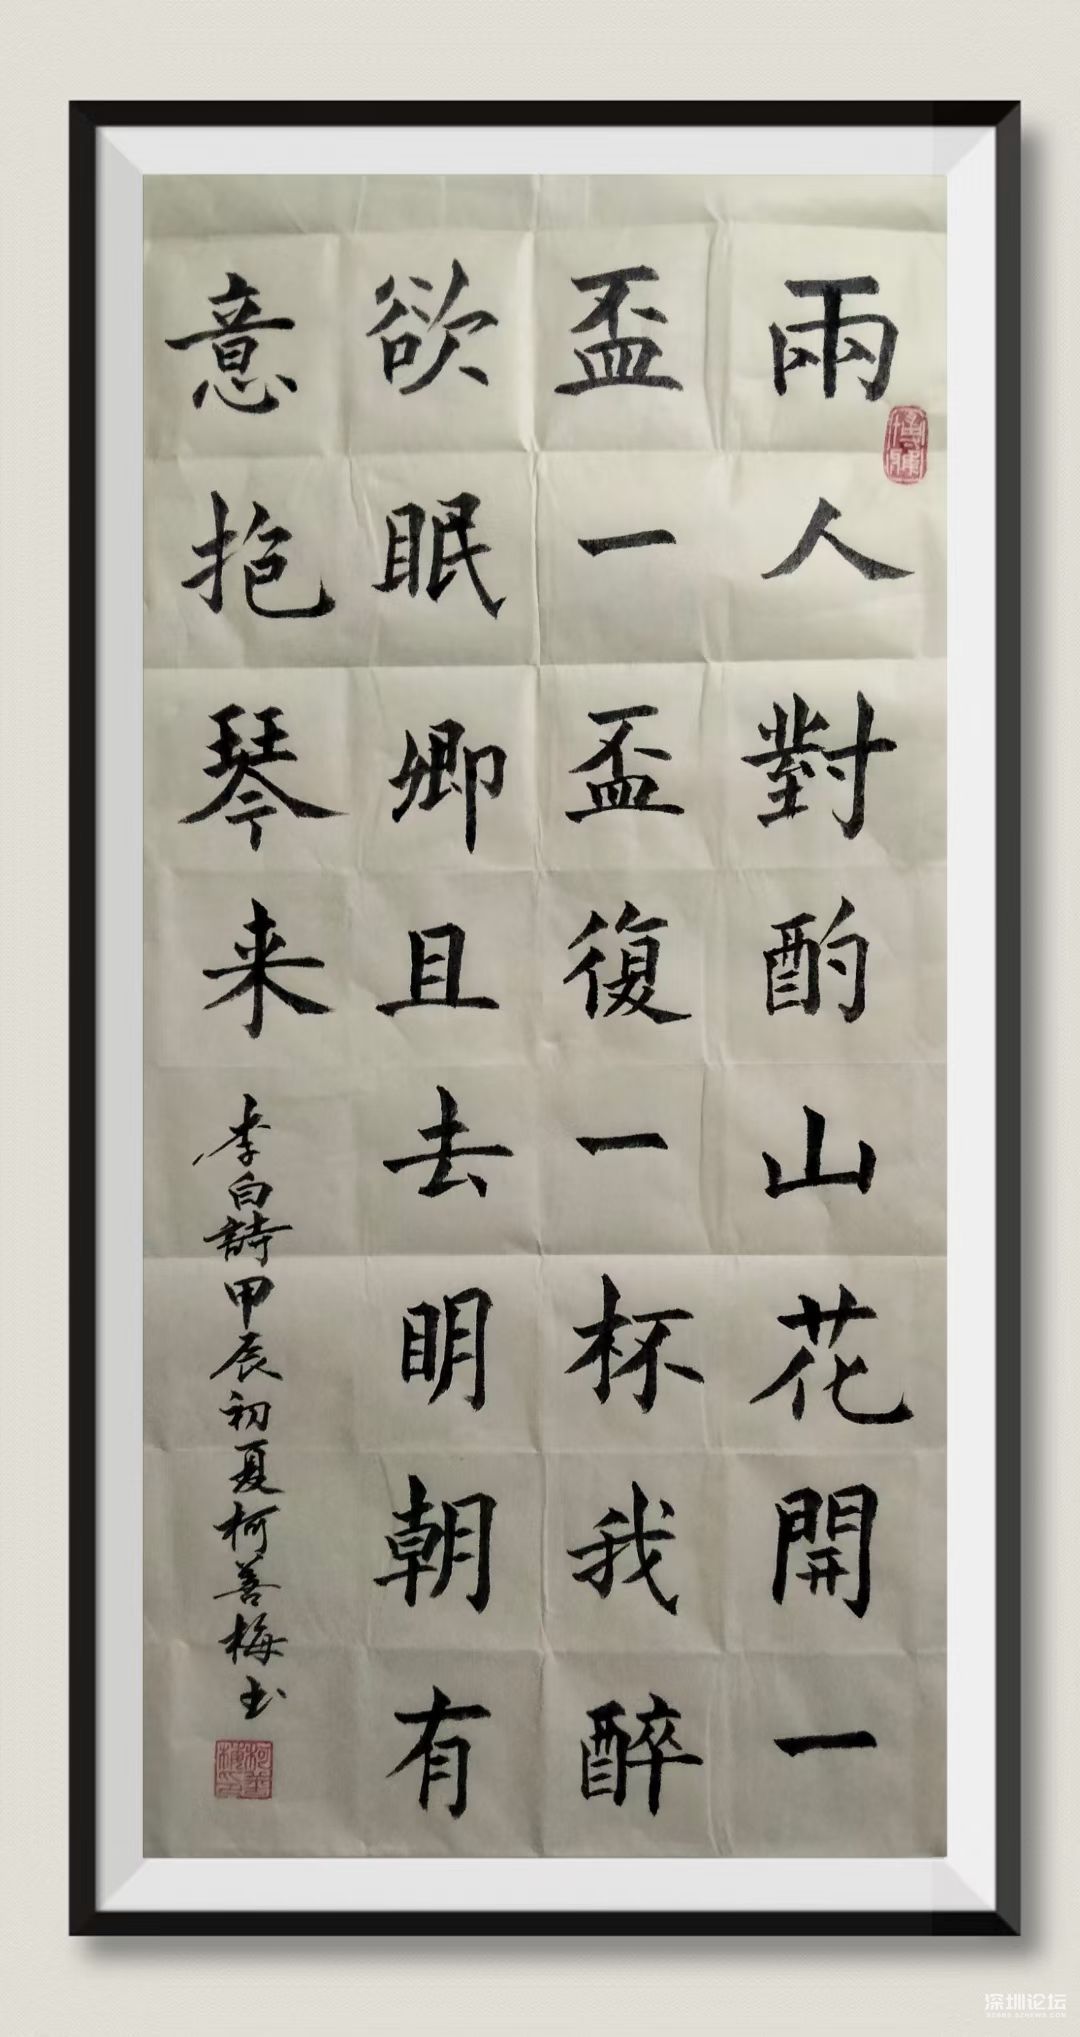 兩人對酌山花開一
盃一盃復一杯我醉
欲眠卿且去明朝有
意抱琴来
李白詩甲辰初夏柯善梅书
深圳论坛